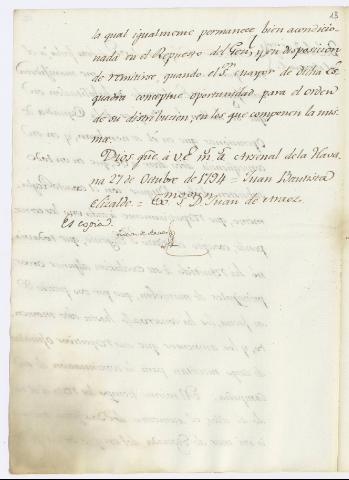 13
la qual igualmente permanece bien acondicio-
nada en el Repuesto del Gral, y en disposicion
de remitirse, quando el Sr. mayor de dicha Es-
quadra conceptue oportunidad para el orden
de su distribucion, en los que componen la mis-
ma.
Dios gue. á V.E. ms. as. Arsenal de la Hava-
na 27 de Octubre de 1794 = Juan Bautista
Elizalde = Exmo Sr. Dn. Juan de Araoz.
Es copia.
Juan de Araoz